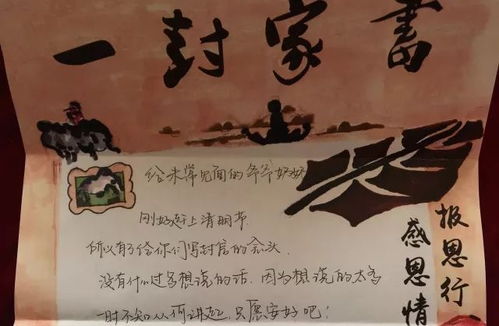 一封家書
给未常见面的爷爷奶奶
刚好赶上清明节
所以有了给你们写封信的念头
没有什么过多想说的话，因为想说的太多
一时不知从何讲起，只愿安好吧！
报恩行
感恩情